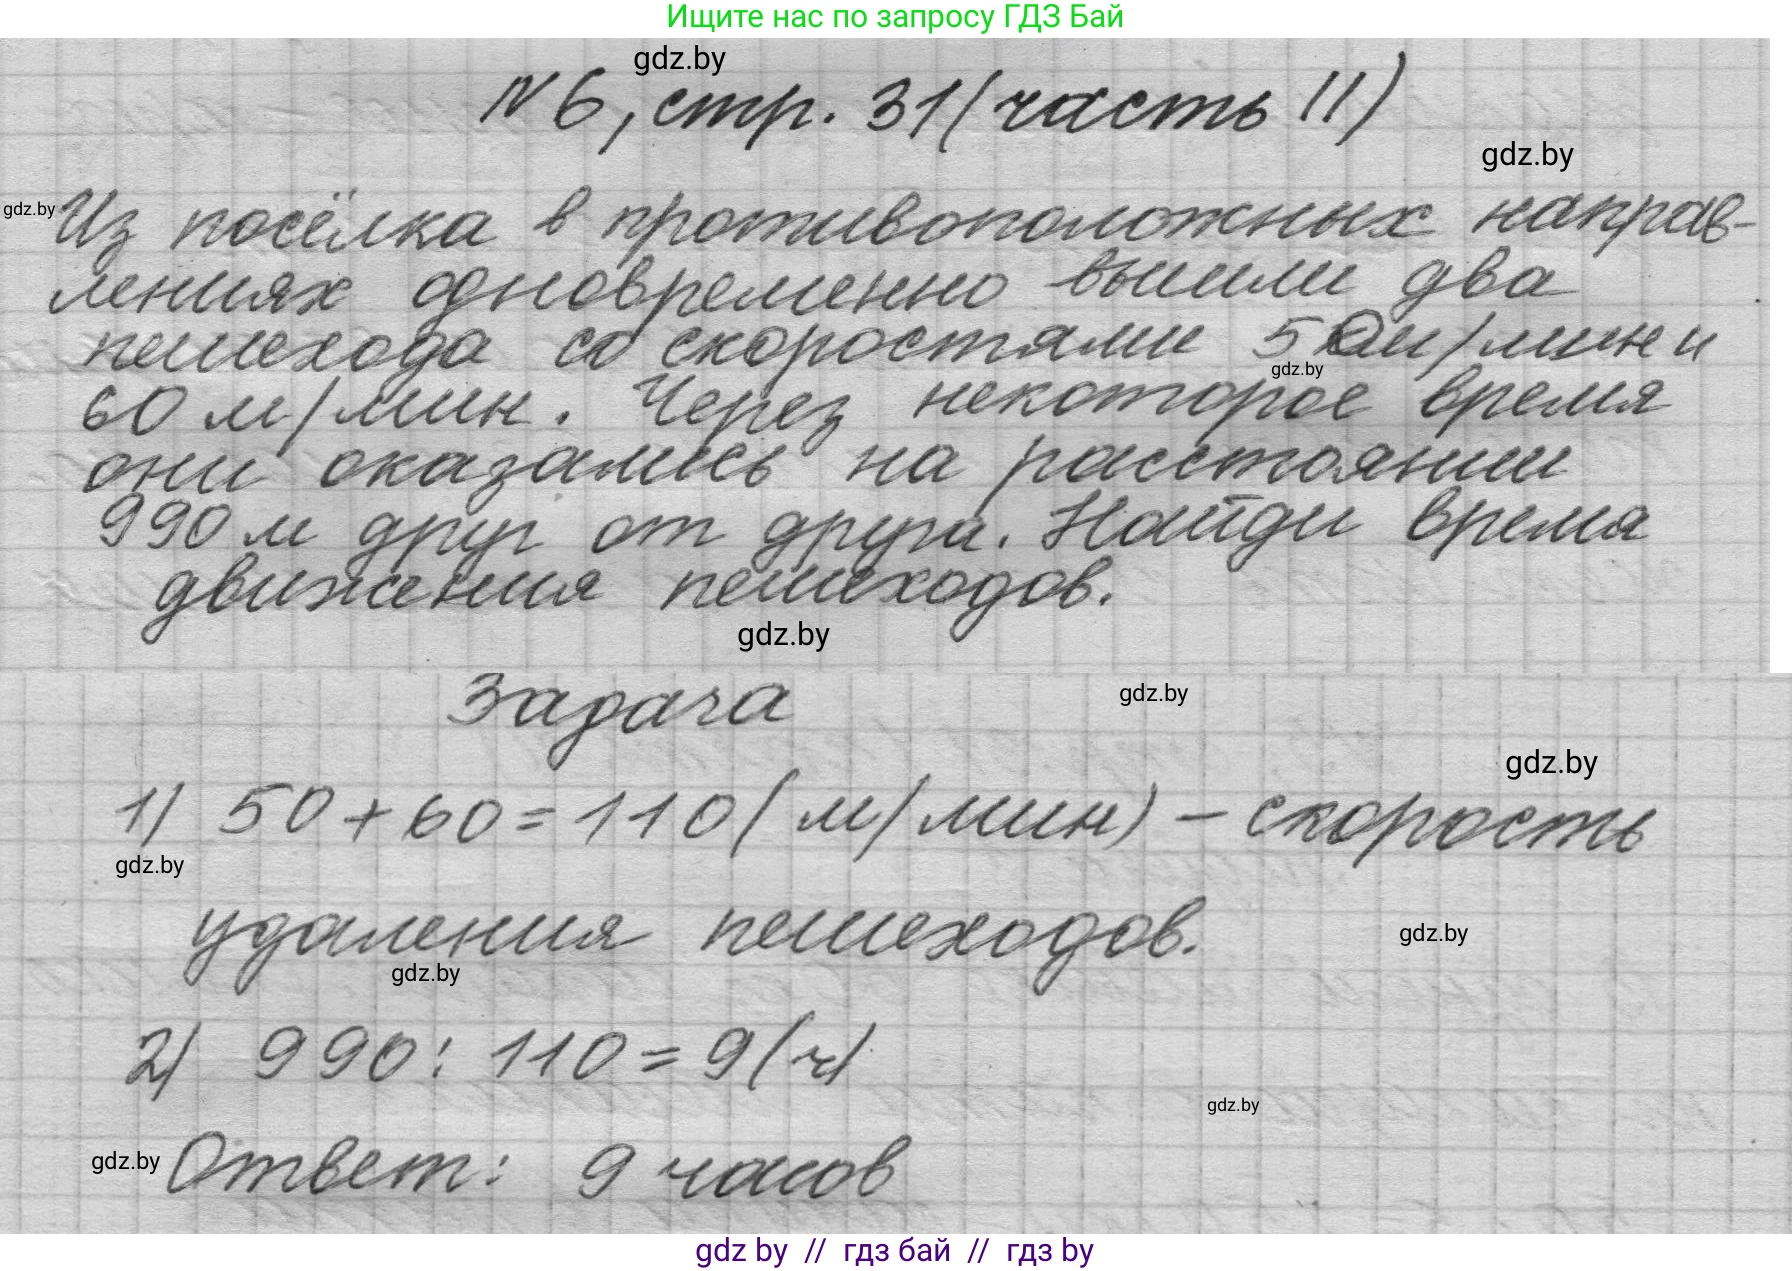 Ищите нас по запросу ГДЗ Бай
gdz.by
N 6, стр. 31 (часть II)
gdz.by
gdz.by
Из посёлка в противоположных направ-
лениях одновременно вышли два
пешехода со скоростями 50 м/мин и
gdz.by
60 м/мин. Через некоторое время
они оказались на расстоянии
990 м друг от друга. Найди время
движения пешеходов.
gdz.by
Задача
gdz.by
gdz.by
1) 50 + 60 = 110 (м/мин) - скорость
gdz.by
удаления пешеходов.
gdz.by
gdz.by
2) 990 : 110 = 9 (ч)
gdz.by
gdz.by
Ответ: 9 часов
gdz by // гдз бай // гдз by